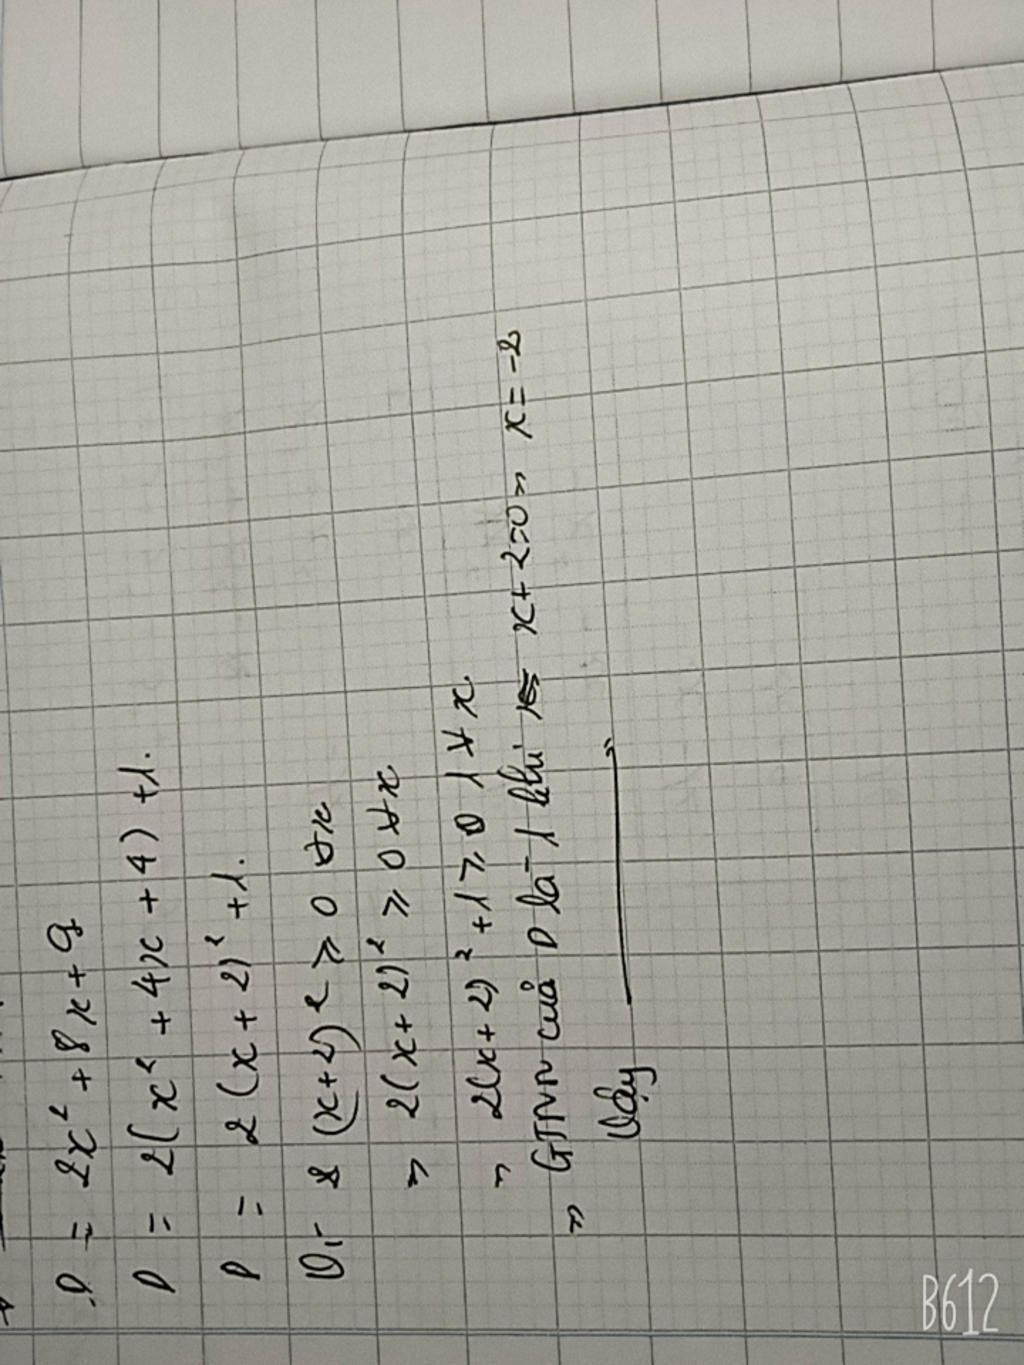 P = 2x² + 8x + 9
P = 2(x² + 4x + 4) + 1.
P = 2(x + 2)² + 1.
Vì (x+2)² ≥ 0 ∀x
=> 2(x + 2)² ≥ 0 ∀x
=> 2(x+2)² + 1 ≥ 1 ∀x.
=> GTNN của P là 1 khi x+2=0 => x = -2
Vậy ———— "
B612